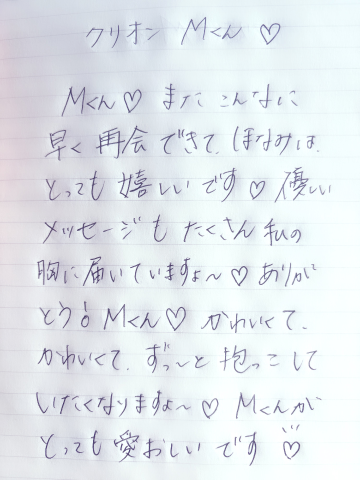 クリオン Mくん ♡
Mくん♡ またこんなに
早く再会できて、ほなみは、
とっても嬉しいです♡ 優しい
メッセージもたくさん私の
胸に届いていますよ〜♡ ありが
とう! Mくん♡ かわいくて、
かわいくて、ずっ〜と抱っこして
いたくなりますよ〜♡ Mくんが
とっても愛おしいです♡